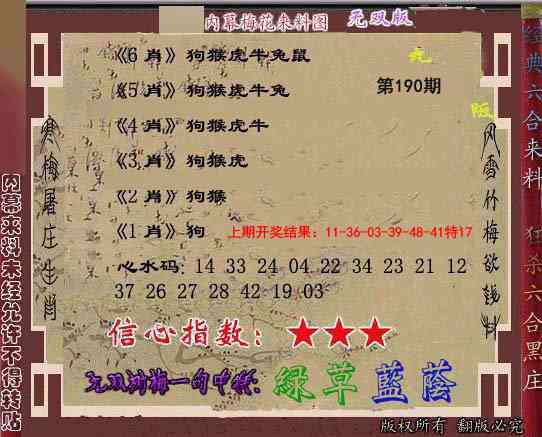 内幕梅花来料图 无双版
《6 肖》狗猴虎牛兔鼠
《5 肖》狗猴虎牛兔
第190期
《4 肖》狗猴虎牛
《3 肖》狗猴虎
《2 肖》狗猴
《1 肖》狗
上期开奖结果：11-36-03-39-48-41特17
心水码：14 33 24 04 22 34 23 21 12
37 26 27 28 42 19 03
信心指数：★★★
一句中特：绿草蓝荫
版权所有 翻版必究
寒梅屠庄生肖
风雪竹梅欲钱料
内幕来料未经允许不得转贴
经典六合来料 狂杀六合黑庄